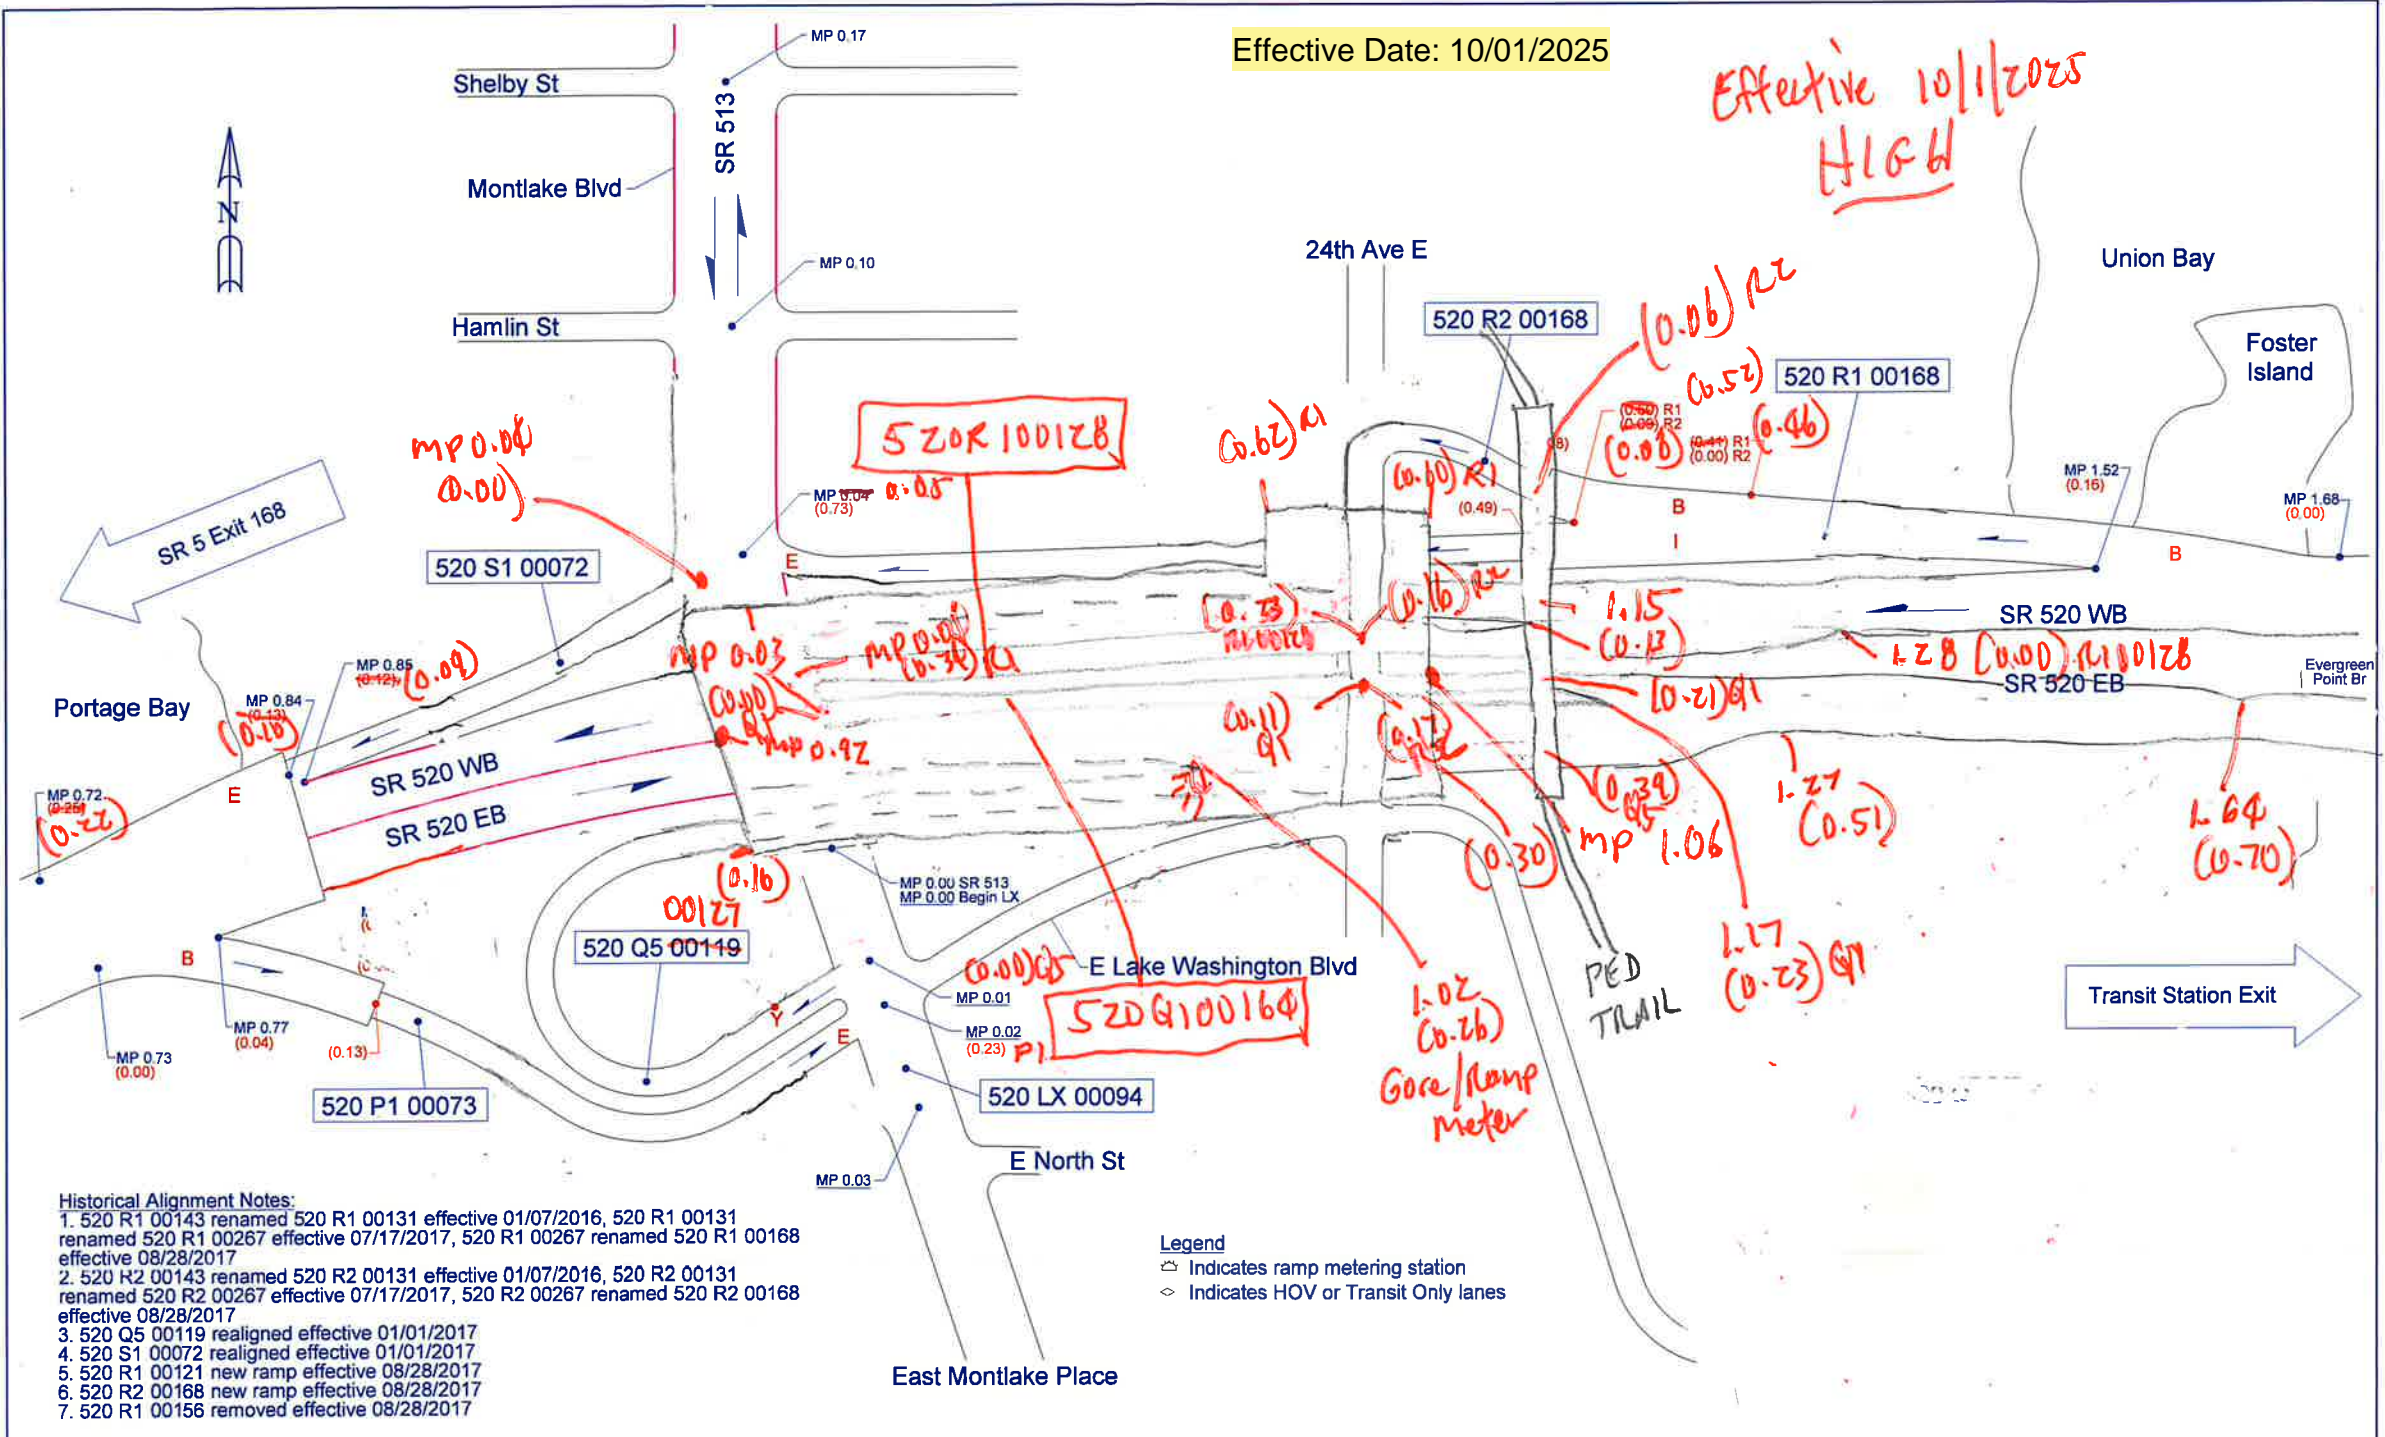 Effective Date: 10/01/2025
Effective 10/1/2025
HIGH
MP 0.17
Shelby St
SR 513
Montlake Blvd
N
MP 0.10
Hamlin St
24th Ave E
Union Bay
520 R2 00168
(0.06) R2
Foster
Island
(0.52)
520 R1 00168
SR 5 Exit 168
MP 0.04
(0.00)
520R100128
(0.62) R1
(0.60) R1
(0.09) R2
(0.46)
(0.41) R1
(0.00) R2
MP 0.04 0.05
(0.73)
(0.60) R1
(0.49)
B
I
MP 1.52
(0.16)
MP 1.68
(0.00)
B
520 S1 00072
E
(0.33)
(0.16) R2
1.15
(0.13)
SR 520 WB
1.28 (0.00) R100128
SR 520 EB
Evergreen
Point Br
MP 0.85
(0.12) (0.09)
MP 0.84
(0.13)
(0.10)
Portage Bay
MP 0.03
(0.00)
Q1
(0.34) R1
MP 0.92
(0.11)
Q1
(0.21) Q1
SR 520 WB
SR 520 EB
E
MP 0.72
(0.25)
(0.22)
(0.39)
Q5
MP 1.06
1.27
(0.51)
1.64
(0.70)
(0.30)
(0.16)
00127
520 Q5 00119
MP 0.00 SR 513
MP 0.00 Begin LX
(0.00) Q5
E Lake Washington Blvd
MP 0.01
MP 0.02
(0.23) P1
520Q100164
1.02
(0.26)
Gore/Ramp
Meter
PED
TRAIL
1.17
(0.23) Q1
Transit Station Exit
B
MP 0.77
(0.04)
MP 0.73
(0.00)
(0.13)
Y
E
520 P1 00073
520 LX 00094
E North St
MP 0.03
East Montlake Place
Historical Alignment Notes:
1. 520 R1 00143 renamed 520 R1 00131 effective 01/07/2016, 520 R1 00131
renamed 520 R1 00267 effective 07/17/2017, 520 R1 00267 renamed 520 R1 00168
effective 08/28/2017
2. 520 R2 00143 renamed 520 R2 00131 effective 01/07/2016, 520 R2 00131
renamed 520 R2 00267 effective 07/17/2017, 520 R2 00267 renamed 520 R2 00168
effective 08/28/2017
3. 520 Q5 00119 realigned effective 01/01/2017
4. 520 S1 00072 realigned effective 01/01/2017
5. 520 R1 00121 new ramp effective 08/28/2017
6. 520 R2 00168 new ramp effective 08/28/2017
7. 520 R1 00156 removed effective 08/28/2017
Legend
Indicates ramp metering station
Indicates HOV or Transit Only lanes